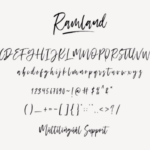 Ramland
ABCDEFGHIJKLMNOPQRSTUVW
abcdefghijklmnopqrstuvwxyz
1234567890
Multilingual Support